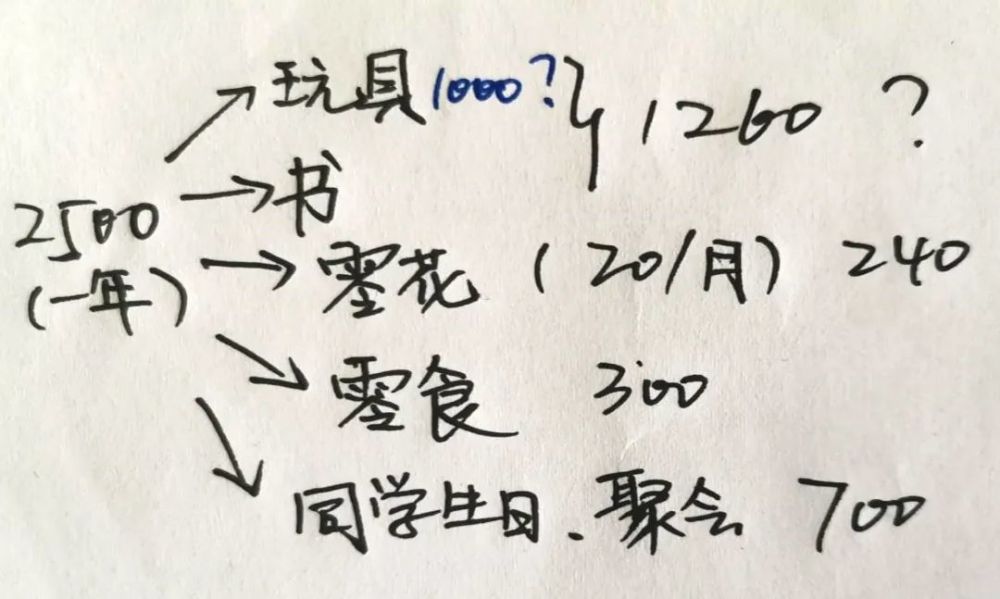 玩具 1000? } 1260 ?
2500 → 书
(一年) → 零花 (20/月) 240
零食 300
同学生日、聚会 700